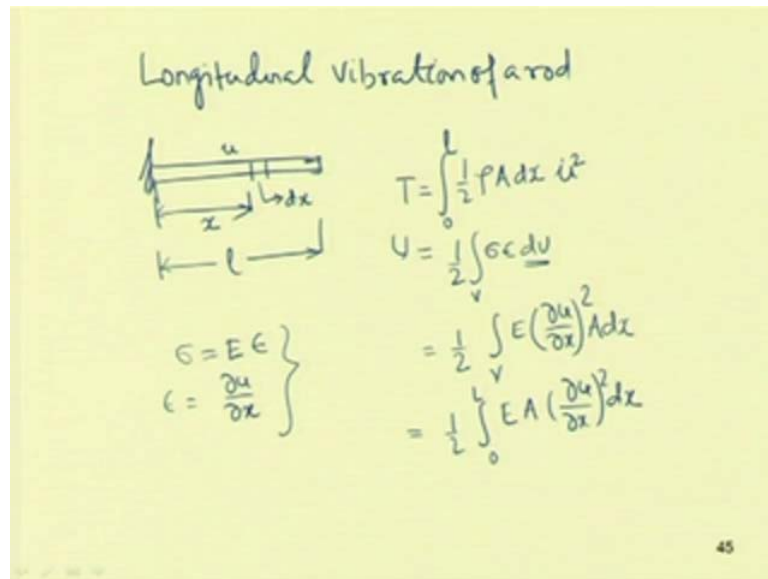 Longitudinal vibration of a rod
u
dx
x
l
σ = E ϵ
ϵ = ∂u/∂x
T = ∫₀ˡ 1/2 ρAdx u̇²
U = 1/2 ∫ᵥ σϵ dv
= 1/2 ∫ᵥ E(∂u/∂x)² Adx
= 1/2 ∫₀ᴸ EA(∂u/∂x)² dx
45